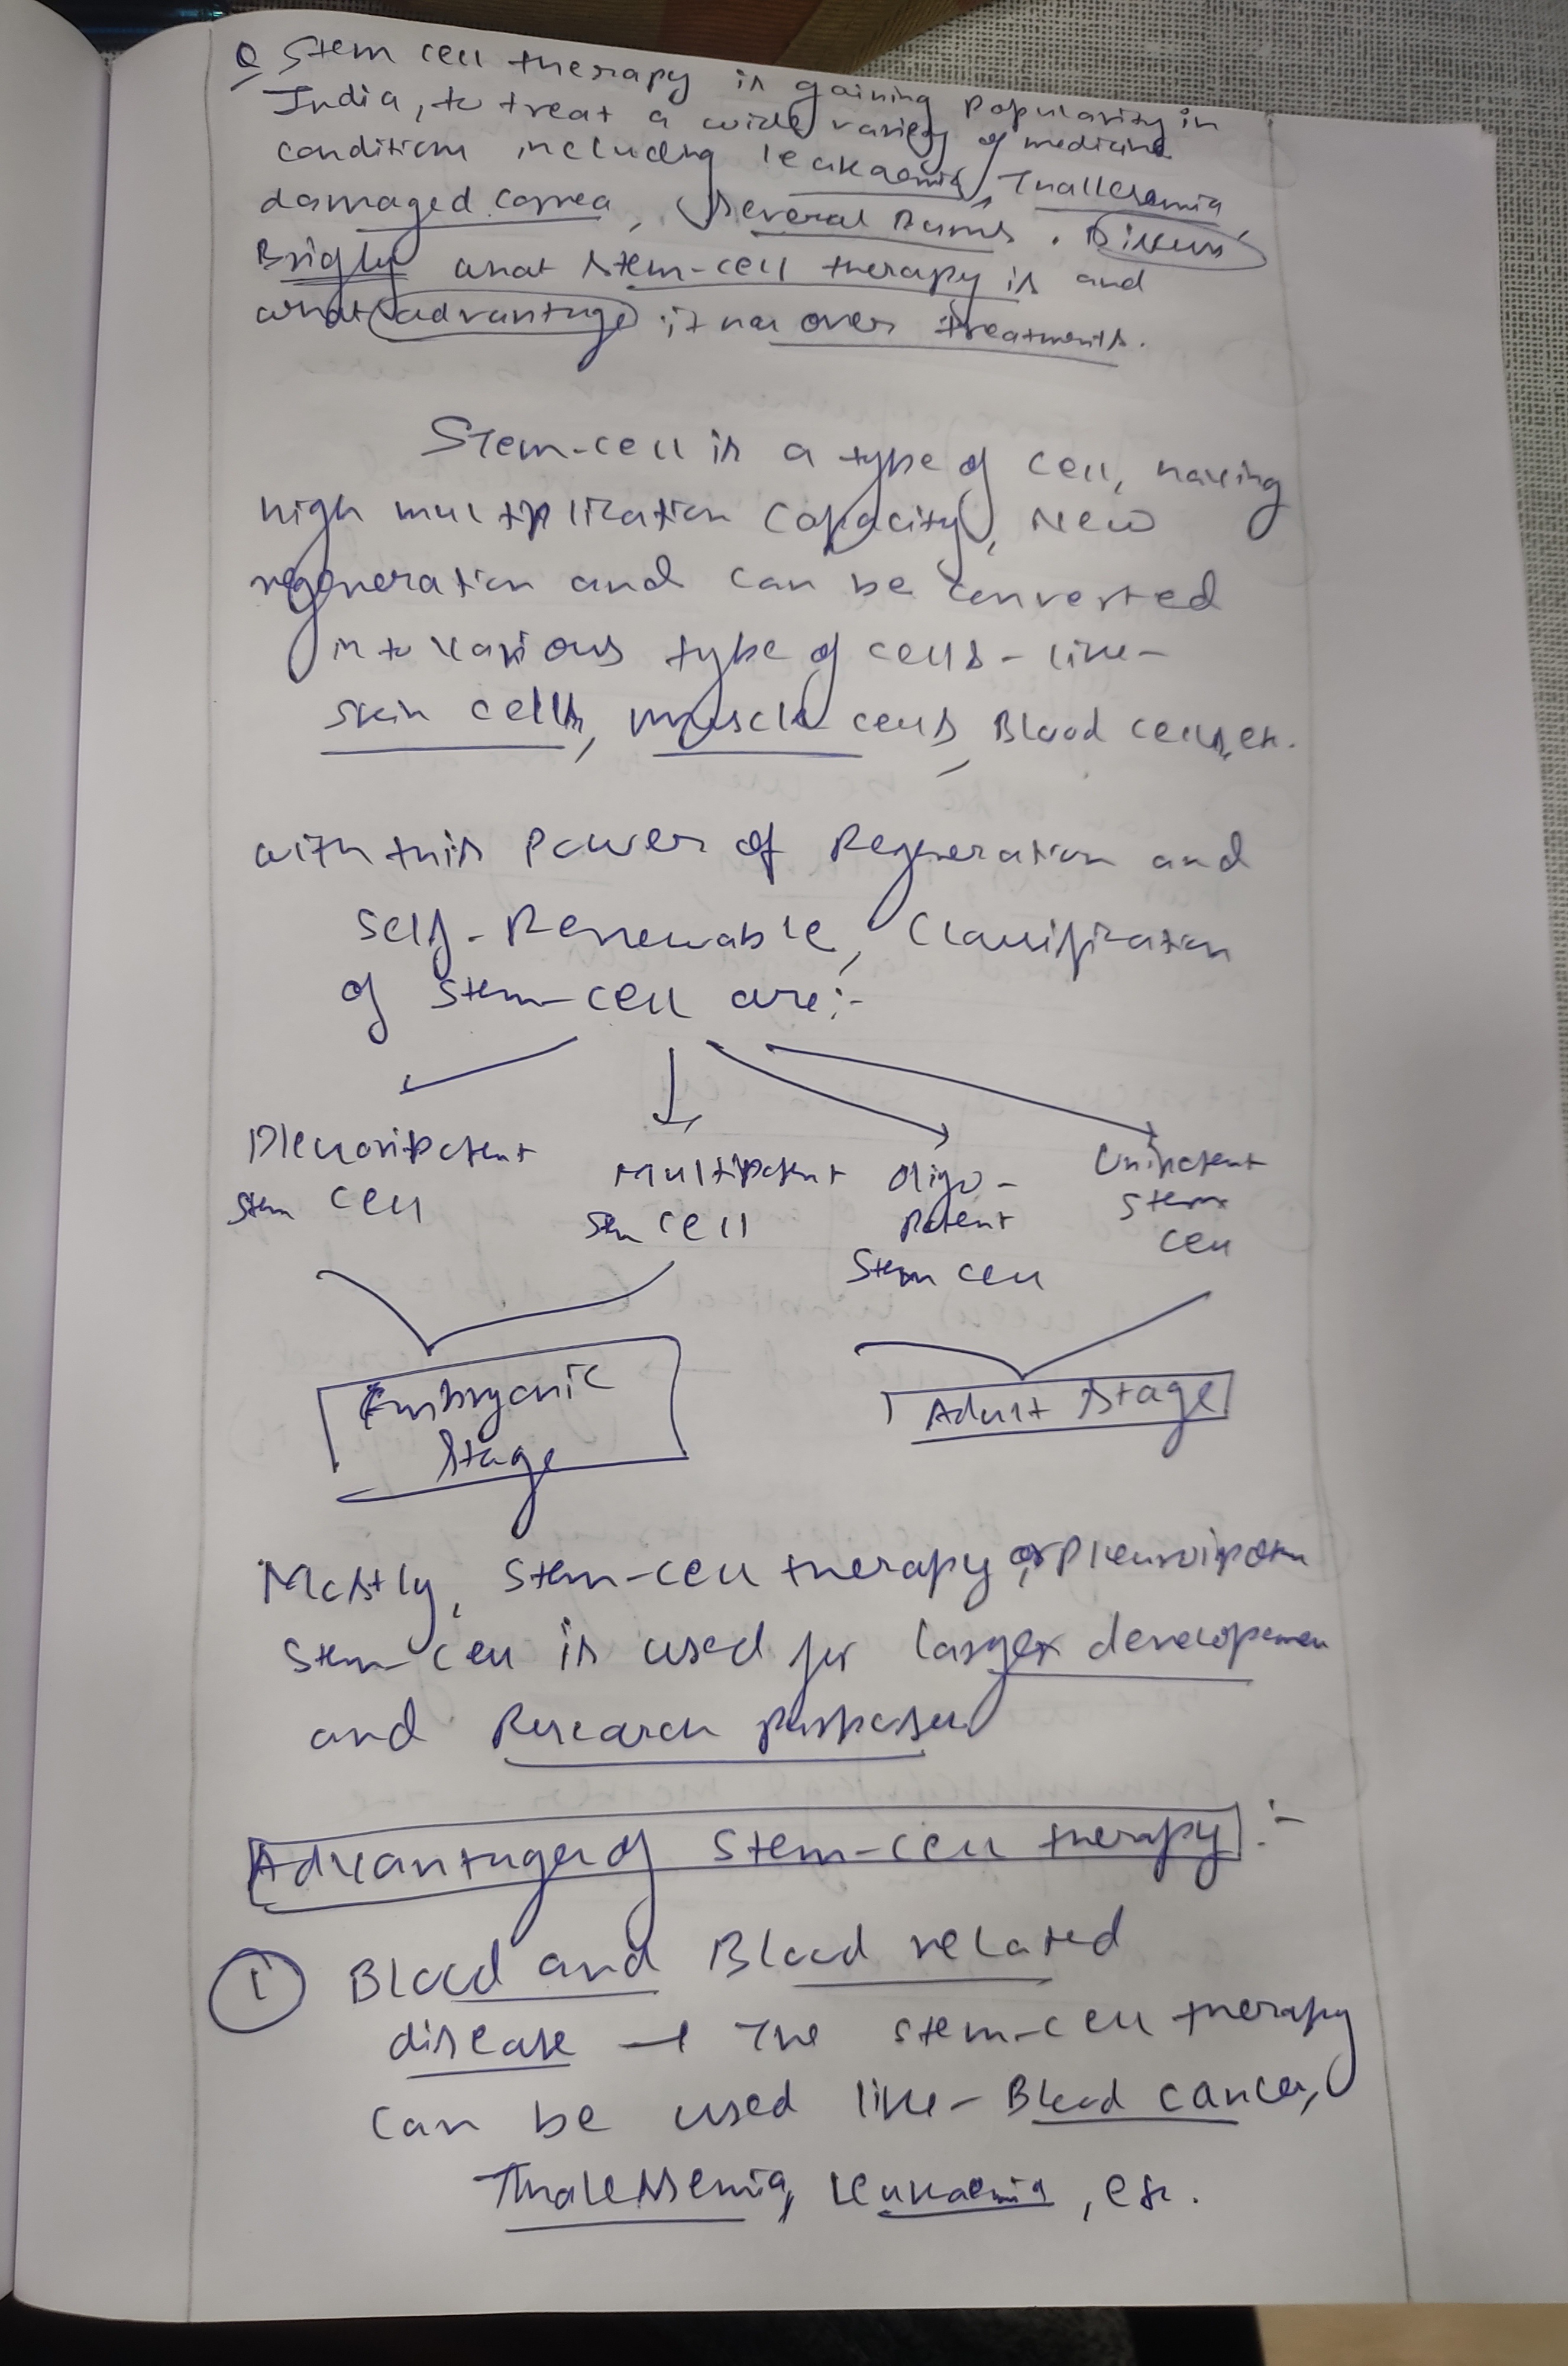 Q Stem cell therapy is gaining popularity in
India, to treat a wide variety of medicine
conditions including leukaemia, Thallesamia,
damaged cornea, Several burns. Discuss
Briefly what stem-cell therapy is and
what advantage it has over treatments.
Stem-cell is a type of cell, having
high multiplication capacity, New
regeneration and can be converted
into various type of cells - like -
skin cells, muscle cells, Blood cells, etc.
with this power of Regeneration and
self-Renewable, Classification
of stem-cell are:-
stem cell
Multipotent
stem cell
Oligo-
potent
Stem cell
Unipotent
stem
cell
Embryonic
Stage
Adult Stage
Mostly, stem-cell therapy, or
stem-cell is used for larger
and Research purposes
Advantages of stem-cell therapy :-
(1) Blood and Blood related
disease → The stem-cell therapy
can be used like - Blood cancer,
Thalessemia, Leukaemia, etc.